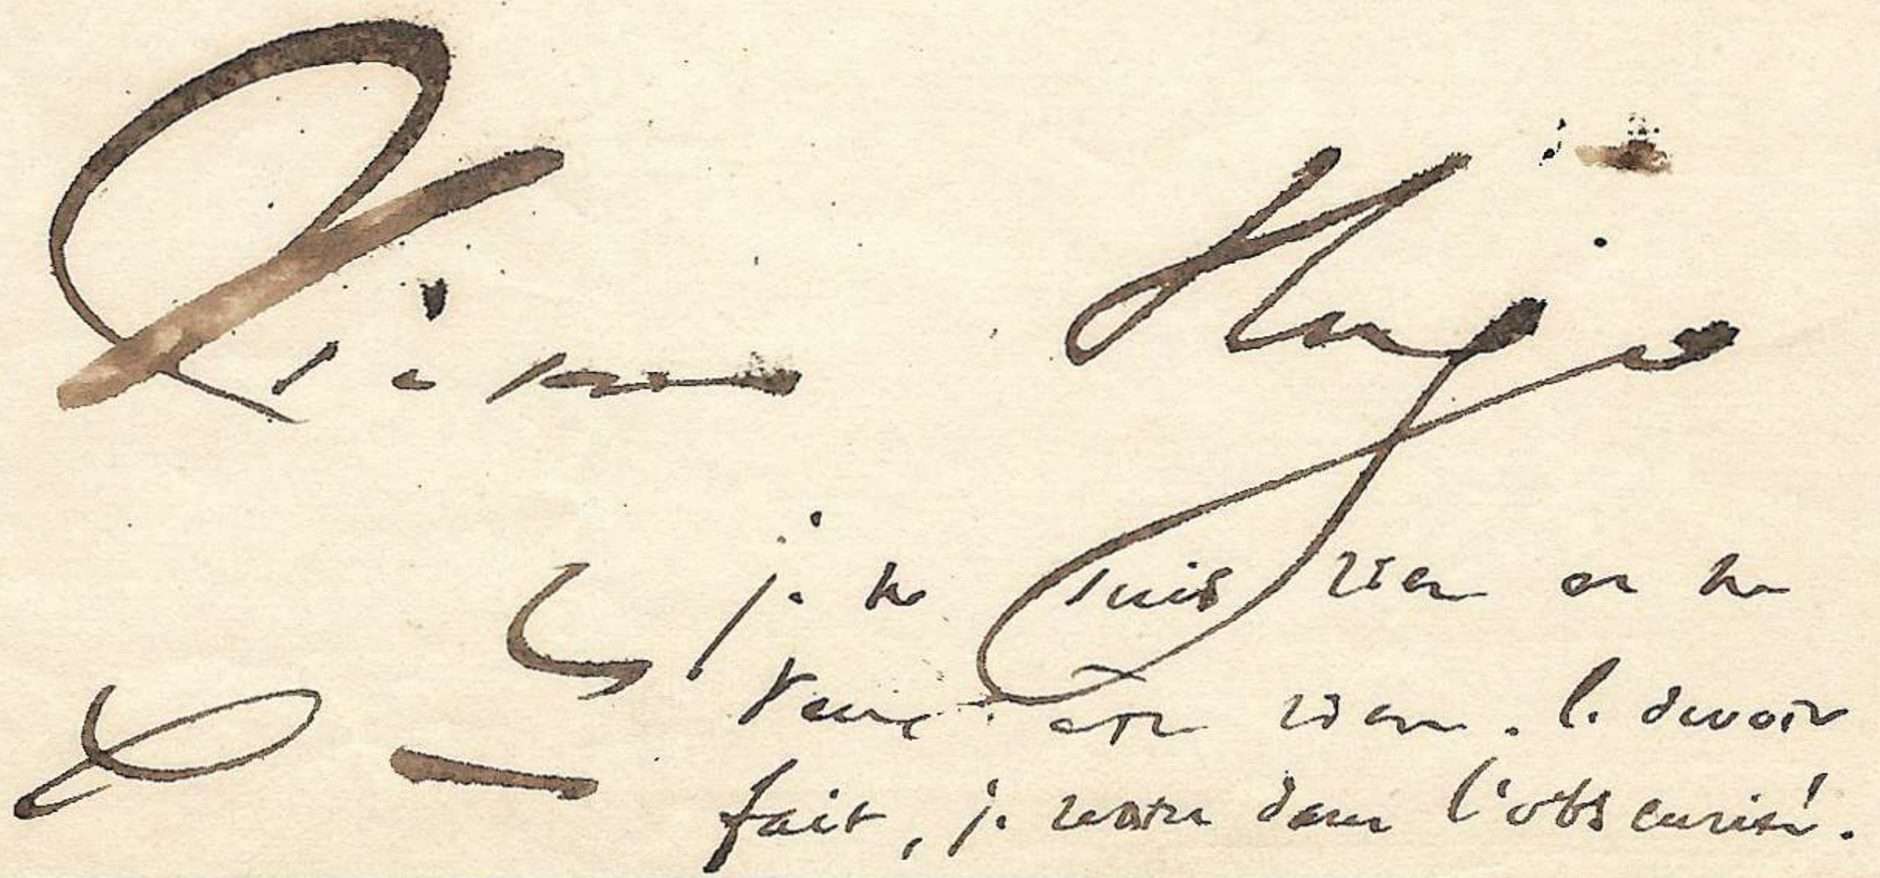 Victor Hugo
je ne suis rien et ne
veux être rien. le devoir
fait, je rentre dans l'obscurité.